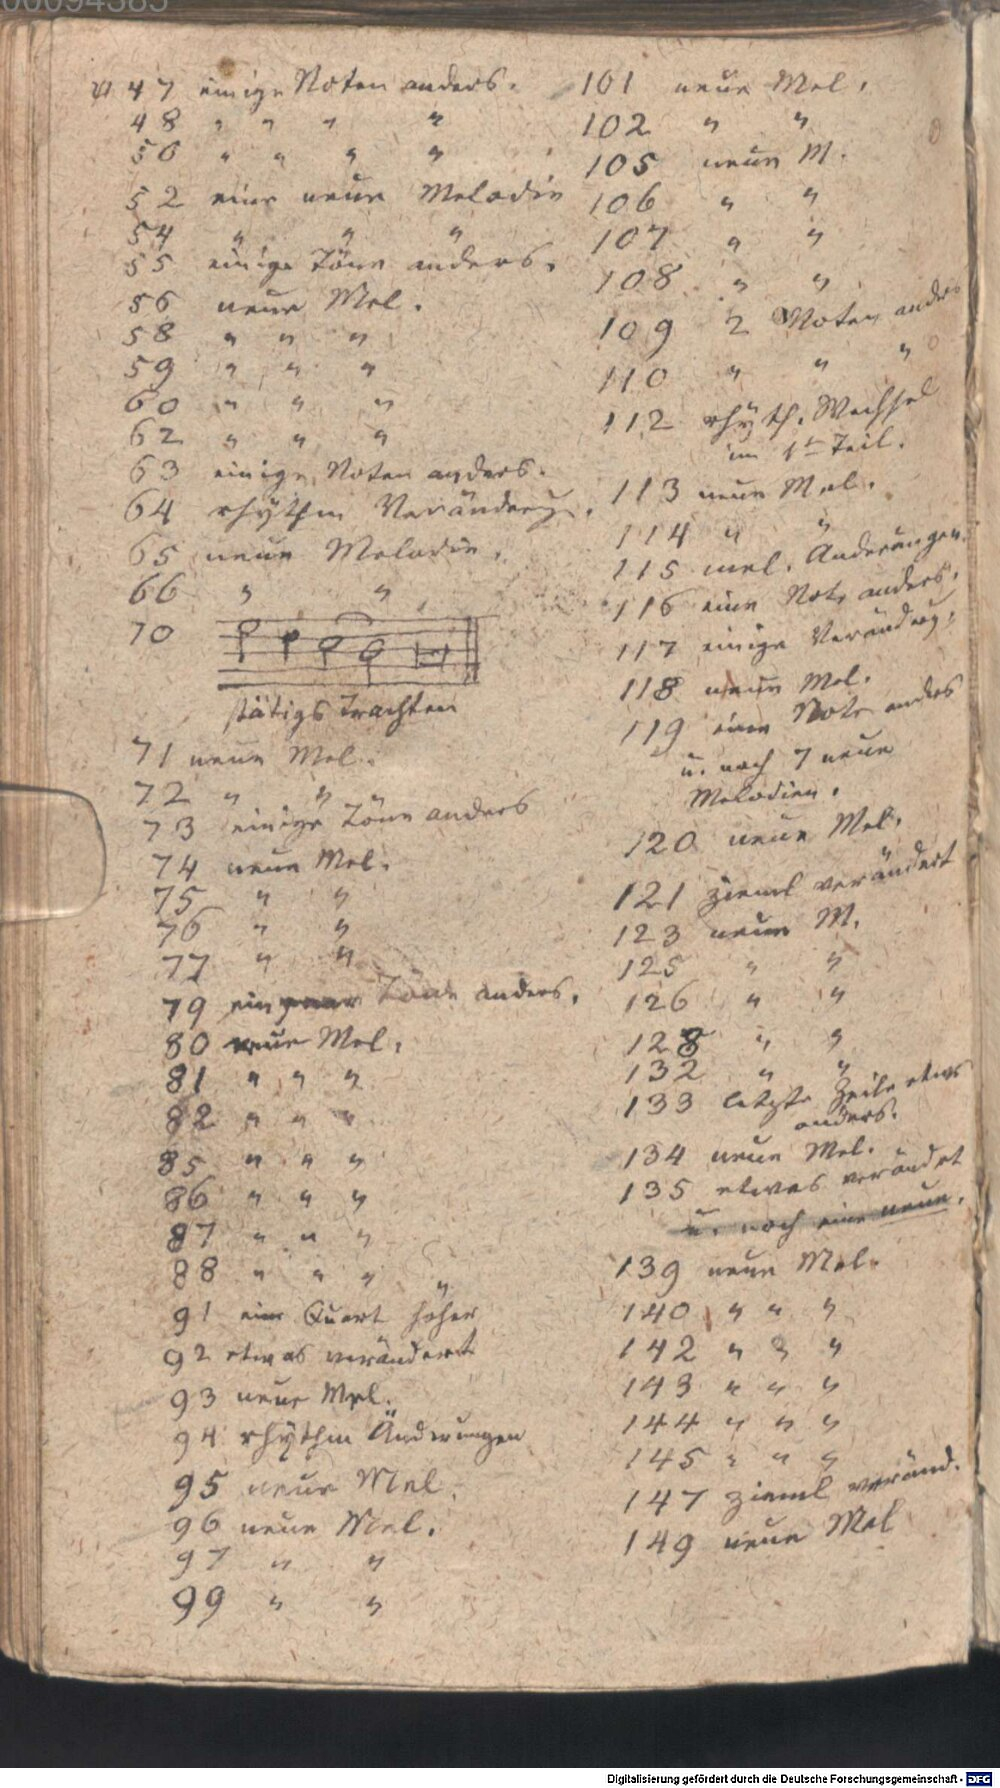 00094385
47 einige Noten anders.
48 " " " "
50 " " " "
52 eine neue Melodie
54 " " "
55 einige Töne anders.
56 neue Mel.
58 " " "
59 " " "
60 " " "
62 " " "
63 einige Noten anders.
64 rhÿthm Veränderg.
65 neue Melodie.
66 " "
70
stätigs Trachten
71 neue Mel.
72 " " "
73 einige Töne anders
74 neue Mel.
75 " "
76 " "
77 " "
79 ein paar Töne anders.
80 neue Mel.
81 " " "
82 " " "
85 " " "
86 " " "
87 " " "
88 " " " "
91 eine Quart höher
92 etwas verändert
93 neue Mel.
94 rhÿthm Änderungen
95 neue Mel.
96 neue Mel.
97 " "
99 " "
101 neue Mel.
102 " "
105 neue M.
106 " "
107 " "
108 " "
109 2 Noten anders
110 " " "
112 rhÿth. Wechsel
im 1t Teil.
113 neue Mel.
114 " "
115 mel. Änderungen.
116 eine Note anders.
117 einige Veränderg.
118 neue Mel.
119 eine Note anders
u. noch 7 neue
Melodien.
120 neue Mel.
121 zieml verändert
123 neue M.
125 " "
126 " "
128 " "
132 " "
133 letzte Zeile etwas
anders.
134 neue Mel.
135 etwas verändet
u. noch eine neue.
139 neue Mel.
140 " " "
142 " " "
143 " " "
144 " " "
145 " " "
147 zieml veränd.
149 neue Mel
Digitalisierung gefördert durch die Deutsche Forschungsgemeinschaft - DFG